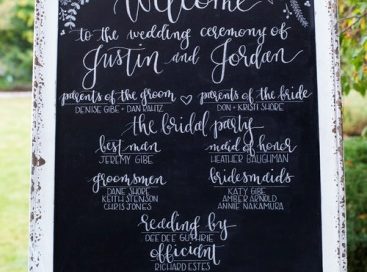 Welcome
to the wedding ceremony of
Justin and Jordan
parents of the groom ♡ parents of the bride
DENISE GIBE + DAN RAHTZ DON + KRISTI SHORE
the bridal party
best man maid of honor
JEREMY GIBE HEATHER BAUGHMAN
groomsmen bridesmaids
DANE SHORE KATY GIBE
KEITH STENSON AMBER ARNOLD
CHRIS JONES ANNIE NAKAMURA
reading by
DEE DEE GUTHRIE
officiant
RICHARD ESTES